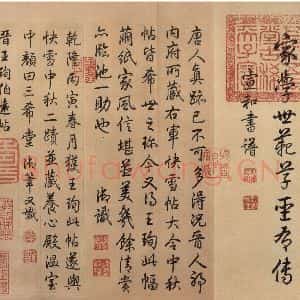 家學世範草聖有傳
宣和書譜
唐人真跡已不可多得況晉人耶
內府所藏右軍快雪帖大令中秋
帖皆希世之珍今又得王珣此幅
繭紙家風信堪並美幾餘清賞
亦臨池一助也 御識
乾隆丙寅春月獲王珣此帖遂與
快雪中秋二蹟並藏養心殿溫室
中顏曰三希堂御筆又識
晉王珣伯遠帖